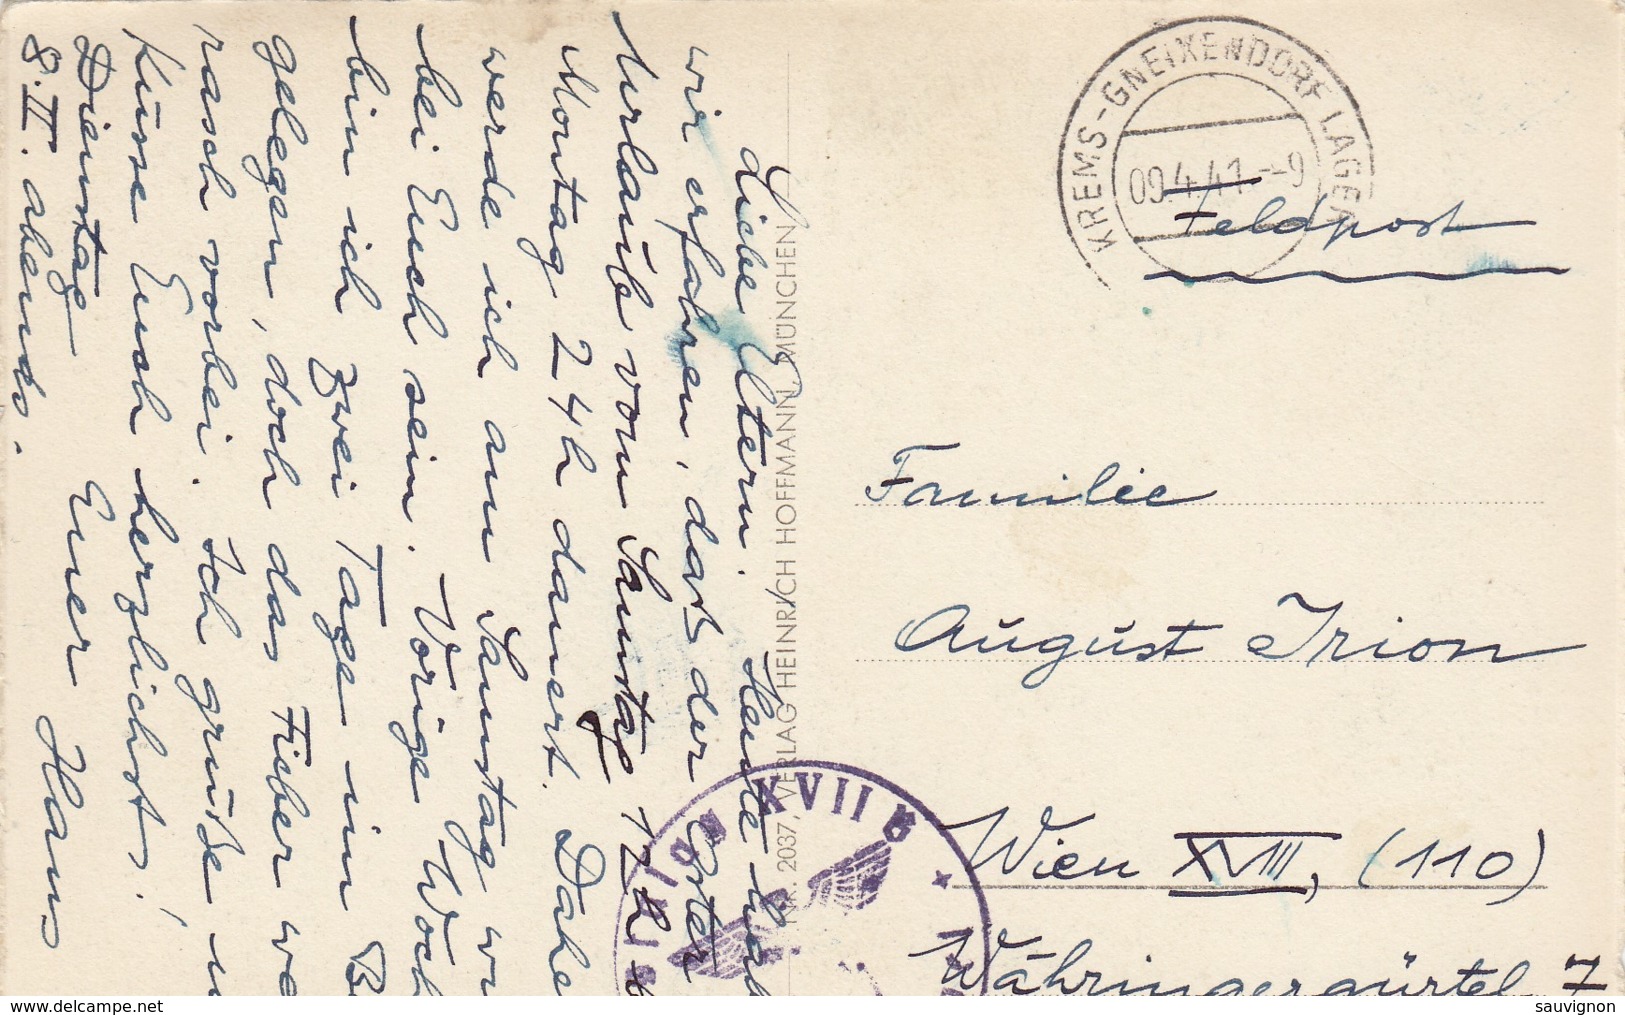 Liebe Eltern. Heute hab
wir erfahren, dass der Oster
Urlaub vom Samstag 12h b
Montag 24h dauert. Dahe
werde ich am Samstag wi
bei Euch sein. Vorige Woch
bin ich zwei Tage im B
gelegen, doch das Fieber wa
rasch vorbei. Ich grüße u
küsse Euch herzlichst!
Dienstag Euer Hans
8.IV. abends.
NR. 2037, VERLAG HEINRICH HOFFMANN, MÜNCHEN
KREMS-GNEIXENDORF LAGER
09.4.41.--9
Feldpost
Familie
August Irion
Wien XVIII, (110)
Währingergürtel 7
XVII B
delcampe.net
sauvignon